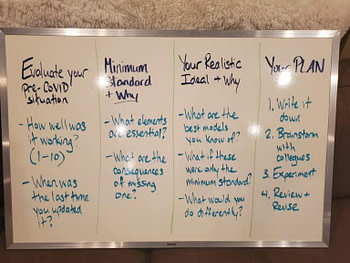 Evaluate your
Pre-COVID
situation
- How well was
it working?
(1-10)
- When was
the last time
you updated
it?
Minimum
Standard
+ Why
- What elements
are essential?
- What are the
consequences
of missing
one?
Your Realistic
Ideal + Why
- What are the
best models
you know of?
- What if these
were only the
minimum standard?
- What would you
do differently?
Your PLAN
1. Write it
down
2. Brainstorm
with
collegues
3. Experiment
4. Review +
Revise